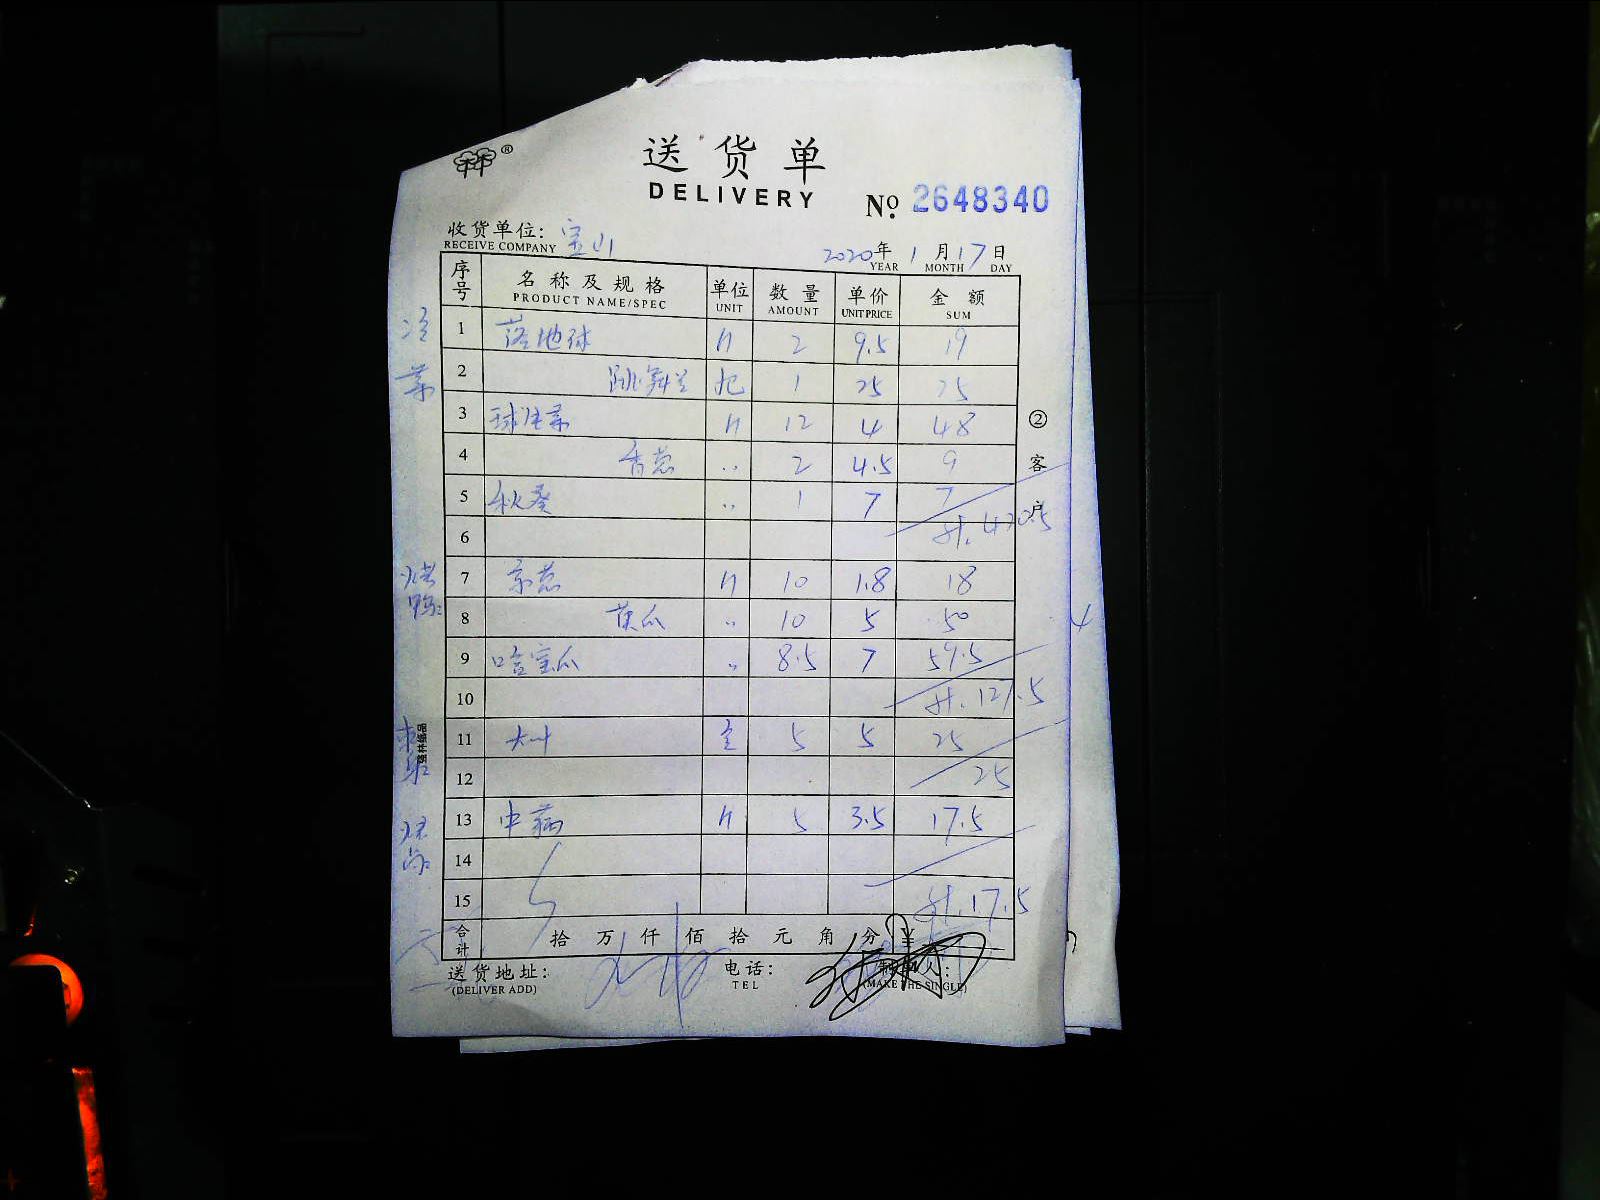 送货单
DELIVERY
№ 2648340
收货单位: 宝山
RECEIVE COMPANY
2020年 1月17日
YEAR MONTH DAY
序号 名称及规格 单位 数量 单价 金额
PRODUCT NAME/SPEC UNIT AMOUNT UNIT PRICE SUM
冷菜
1 落地球 斤 2 9.5 19
2 跳舞兰 把 1 25 25
3 球生菜 斤 12 4 48
4 香葱 〃 2 4.5 9
5 秋葵 〃 1 7 7
6
烤鸭:
7 京葱 斤 10 1.8 18
8 黄瓜 〃 10 5 50
9 哈蜜瓜 〃 8.5 7 59.5
10 计.127.5
11 5 5 25
12 25
13 斤 5 3.5 17.5
14
15 计.17.5
合计 拾 万 仟 佰 拾 元 角 分 ¥
送货地址: 电话: 制单人:
(DELIVER ADD) TEL (MAKE THE SINGLE)
②客户